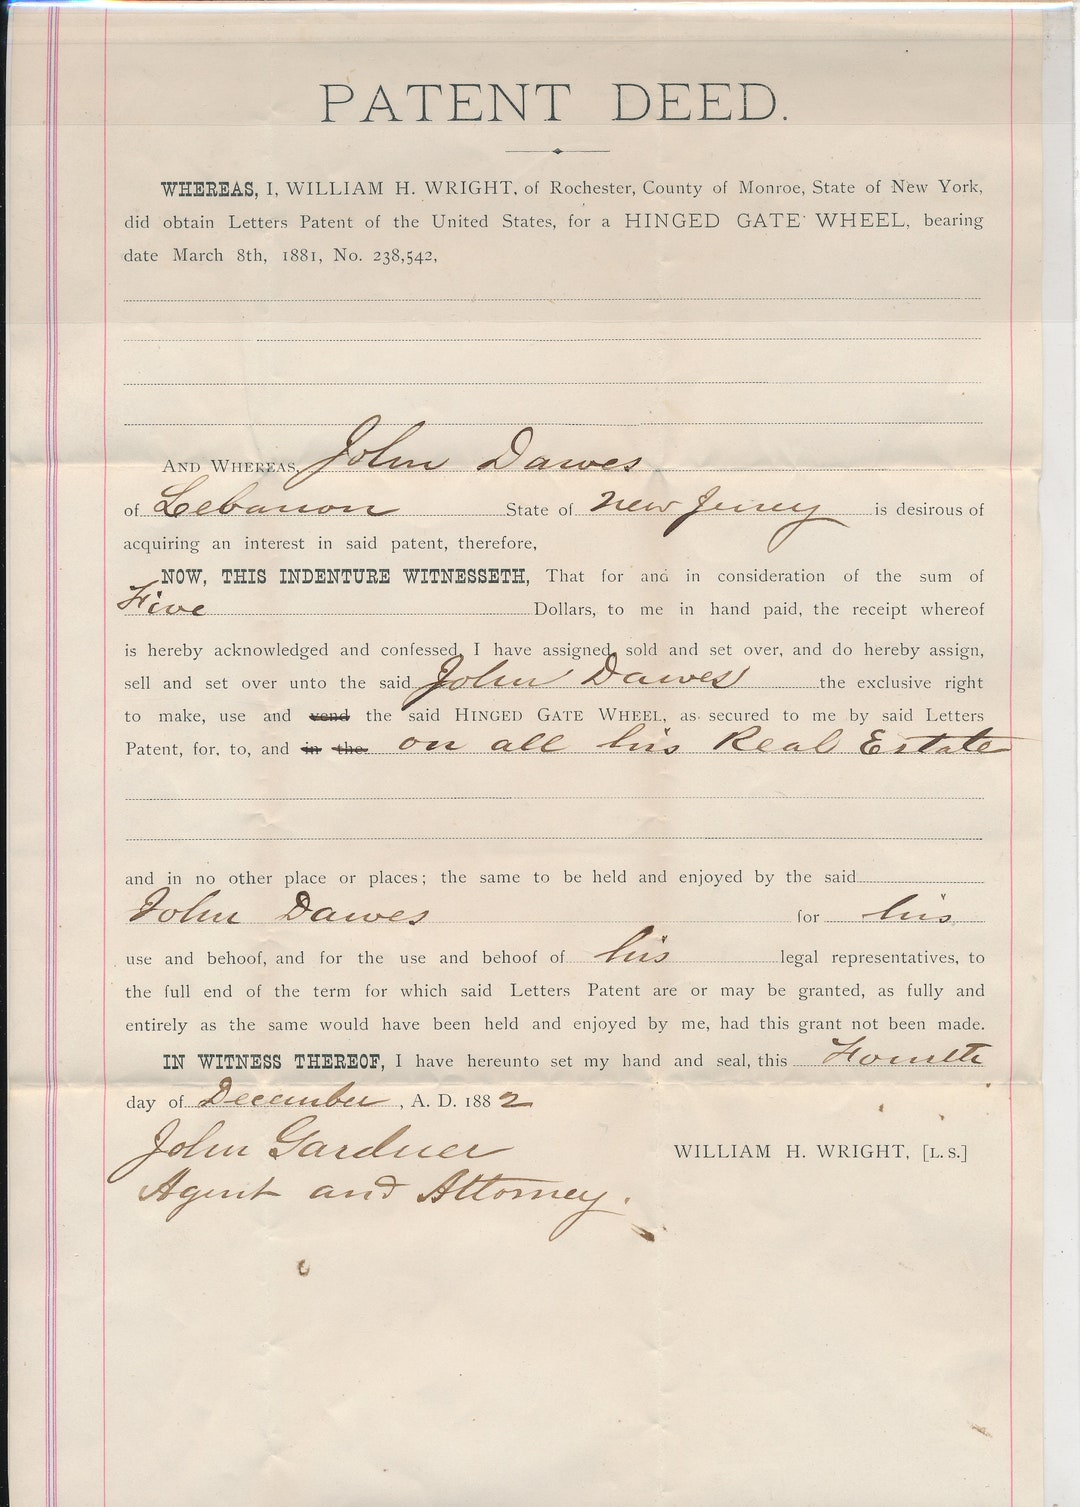 PATENT DEED.
WHEREAS, I, WILLIAM H. WRIGHT, of Rochester, County of Monroe, State of New York,
did obtain Letters Patent of the United States, for a HINGED GATE WHEEL, bearing
date March 8th, 1881, No. 238,542,
AND WHEREAS, John Dawes
of Lebanon State of New Jersey is desirous of
acquiring an interest in said patent, therefore,
NOW, THIS INDENTURE WITNESSETH, That for and in consideration of the sum of
Five Dollars, to me in hand paid, the receipt whereof
is hereby acknowledged and confessed, I have assigned, sold and set over, and do hereby assign,
sell and set over unto the said John Dawes the exclusive right
to make, use and vend the said HINGED GATE WHEEL, as secured to me by said Letters
Patent, for, to, and in the on all his Real Estate
and in no other place or places; the same to be held and enjoyed by the said
John Dawes for his
use and behoof, and for the use and behoof of his legal representatives, to
the full end of the term for which said Letters Patent are or may be granted, as fully and
entirely as the same would have been held and enjoyed by me, had this grant not been made.
IN WITNESS THEREOF, I have hereunto set my hand and seal, this Fourth
day of December, A. D. 1882
John Gardner WILLIAM H. WRIGHT, [L. S.]
Agent and Attorney.